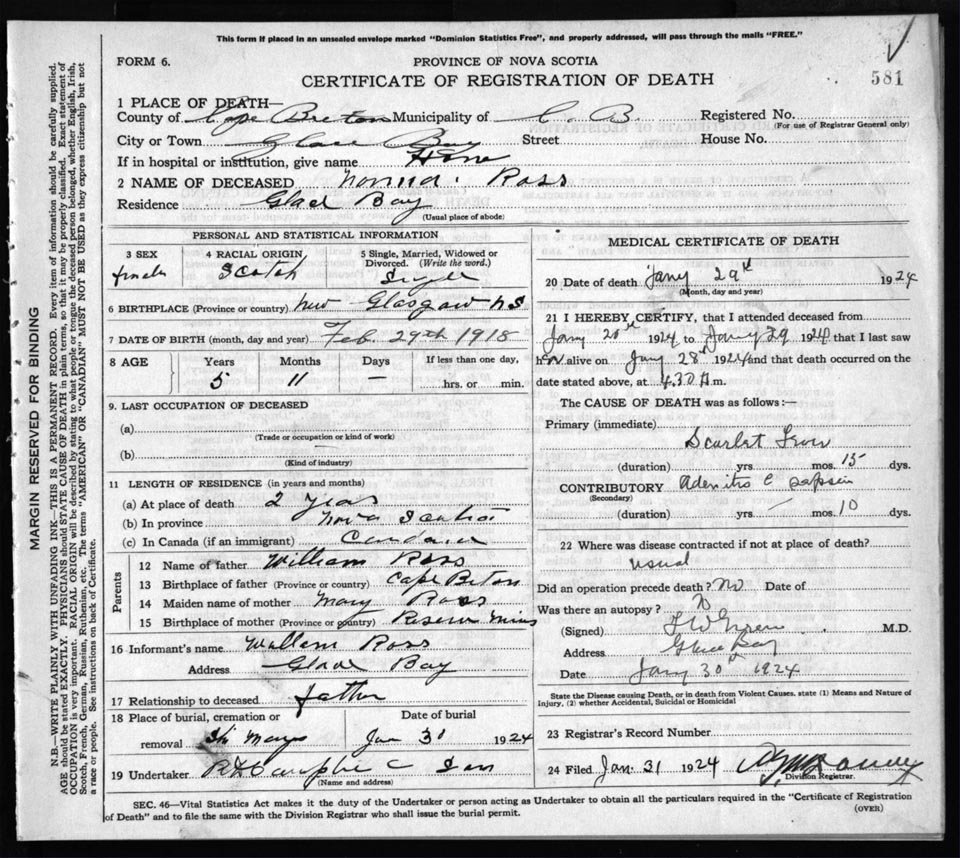 This form if placed in an unsealed envelope marked "Dominion Statistics Free", and properly addressed, will pass through the mails "FREE."
FORM 6.
PROVINCE OF NOVA SCOTIA
CERTIFICATE OF REGISTRATION OF DEATH
581
1 PLACE OF DEATH—
County of Cape Breton Municipality of C. B. Registered No.
(For use of Registrar General only)
City or Town Glace Bay Street House No.
If in hospital or institution, give name Home
2 NAME OF DECEASED Ross
Residence Glace Bay
(Usual place of abode)
PERSONAL AND STATISTICAL INFORMATION
3 SEX female
4 RACIAL ORIGIN Scotch
5 Single, Married, Widowed or Divorced. (Write the word.) Single
6 BIRTHPLACE (Province or country) New Glasgow N S
7 DATE OF BIRTH (month, day and year) Feb. 29th 1918
8 AGE Years Months Days If less than one day,
5 11 — hrs. or min.
9. LAST OCCUPATION OF DECEASED
(a)
(Trade or occupation or kind of work)
(b)
(Kind of industry)
11 LENGTH OF RESIDENCE (in years and months)
(a) At place of death 2 years
(b) In province Nova Scotia
(c) In Canada (if an immigrant) Canada
Parents
12 Name of father William Ross
13 Birthplace of father (Province or country) Cape Breton
14 Maiden name of mother Mary Ross
15 Birthplace of mother (Province or country) Reserve Mines
16 Informant's name William Ross
Address Glace Bay
17 Relationship to deceased father
18 Place of burial, cremation or removal Date of burial
Jan 30 1924
19 Undertaker Son
(Name and address)
MEDICAL CERTIFICATE OF DEATH
20 Date of death Jany 29th 1924
(Month, day and year)
21 I HEREBY CERTIFY, that I attended deceased from
Jany 20th 1924 to Jany 29 1924 that I last saw
her alive on Jany 28th 1924 and that death occurred on
date stated above, at 4.30 A.m.
The CAUSE OF DEATH was as follows:—
Primary (immediate)
Scarlet Fever
(duration) yrs. mos. 15 dys.
CONTRIBUTORY Adenitis c sepsis
(Secondary)
(duration) yrs. — mos. 10 dys.
22 Where was disease contracted if not at place of death?
usual
Did an operation precede death? No Date of
Was there an autopsy?
(Signed) M.D.
Address Glace Bay
Date Jany 30th 1924
State the Disease causing Death, or in death from Violent Causes, state (1) Means and Nature of
Injury, (2) whether Accidental, Suicidal or Homicidal
23 Registrar's Record Number
24 Filed Jan. 31 1924
Division Registrar.
SEC. 46—Vital Statistics Act makes it the duty of the Undertaker or person acting as Undertaker to obtain all the particulars required in the "Certificate of Registration
of Death" and to file the same with the Division Registrar who shall issue the burial permit.
(OVER)
MARGIN RESERVED FOR BINDING
N.B.—WRITE PLAINLY WITH UNFADING INK—THIS IS A PERMANENT RECORD. Every item of information should be carefully supplied.
AGE should be stated EXACTLY. PHYSICIANS should STATE CAUSE OF DEATH in plain terms, so that it may be properly classified. Exact statement of
OCCUPATION is very important. RACIAL ORIGIN will be described by stating to what people or tongue the deceased person belonged, whether English, Irish,
Scotch, French, German, Russian, Ruthenian, etc. The terms "AMERICAN" OR "CANADIAN" MUST NOT BE USED as they express citizenship but not
a race or people. See instructions on back of Certificate.